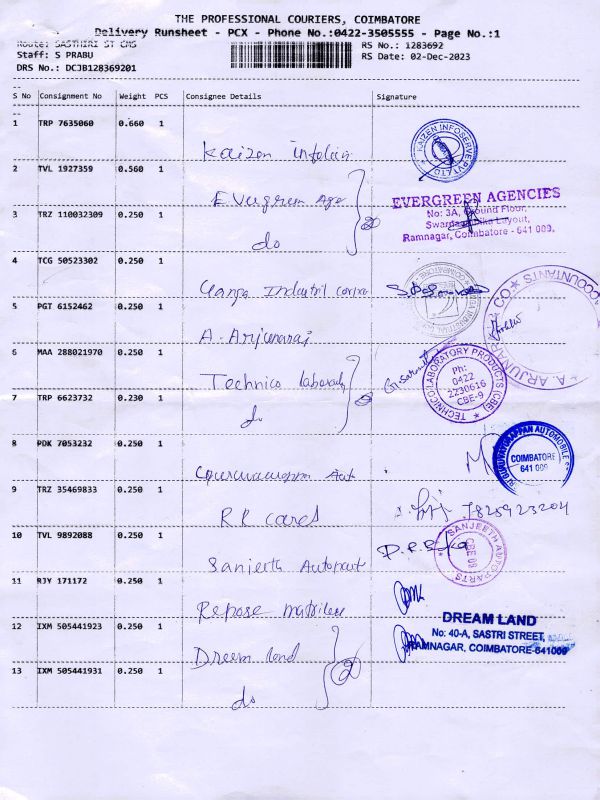 THE PROFESSIONAL COURIERS, COIMBATORE
Delivery Runsheet - PCX - Phone No.:0422-3505555 - Page No.:1
Route: SASTHIRI ST CMS
RS No.: 1283692
Staff: S PRABU
RS Date: 02-Dec-2023
DRS No.: DCJB128369201
S No Consignment No Weight PCS Consignee Details Signature
1 TRP 7635060 0.660 1
Kaizen KAIZEN INFOSERVE PVT LTD
2 TVL 1927359 0.560 1
Evergreen Age
EVERGREEN AGENCIES
No: 3A, Ground Floor,
Layout,
Ramnagar, Coimbatore - 641 009.
3 TRZ 110032309 0.250 1
do
4 TCG 50523302 0.250 1
5 PGT 6152462 0.250 1
A. Arjunaraj
A. ARJUNARAJ & CO ACCOUNTANTS
6 MAA 288021970 0.250 1
Technico
TECHNICO LABORATORY PRODUCTS (CBE)
Ph:
0422
2230616
CBE-9
7 TRP 6623732 0.230 1
do
8 PDK 7053232 0.250 1
AUTOMOBILE
COIMBATORE
641 009
9 TRZ 35469833 0.250 1
R R cares 7825923204
10 TVL 9892088 0.250 1
Sanjeeth
SANJEETH AUTO PARTS
CBE 09
11 RJY 171172 0.250 1
Repose
12 IXM 505441923 0.250 1
Dreem land
DREAM LAND
No: 40-A, SASTRI STREET,
RAMNAGAR, COIMBATORE-641009
13 IXM 505441931 0.250 1
do